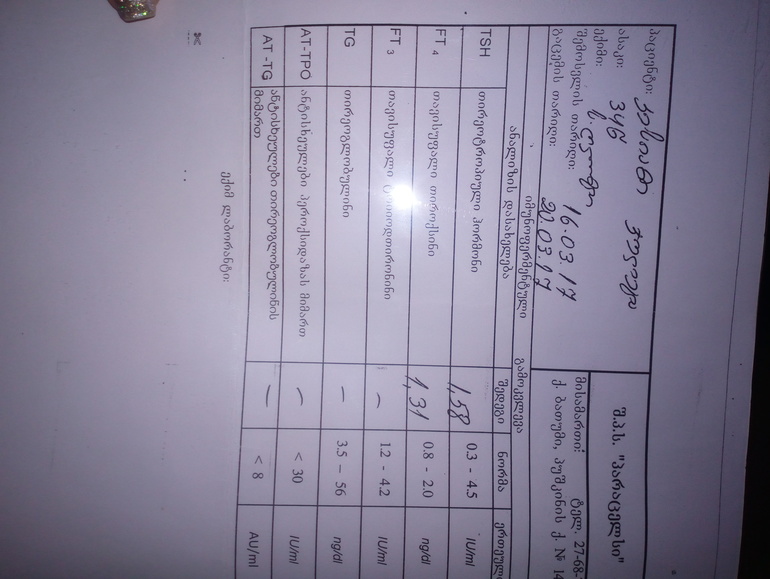 შ.პ.ს. "პარაცელსი"
პაციენტი:
ასაკი: 34წ
ექიმი:
შემოსვლის თარიღი: 16.03.17
გაცემის თარიღი: 20.03.17
მისამართი: ტელ. 27-68-
ქ. ბათუმი, პუშკინის ქ. № 14
იმუნოფერმენტული გამოკვლევა
ანალიზის დასახელება შედეგი ნორმა ერთეული
TSH თირეოტროპული ჰორმონი 1,58 0.3 - 4.5 IU/ml
FT 4 თავისუფალი თიროქსინი 1,31 0.8 - 2.0 ng/dl
FT 3 თავისუფალი ტრიიოდთირონინი — 1.2 - 4.2 IU/ml
TG თირეოგლობულინი — 3.5 – 56 ng/dl
AT-TPO ანტისხეულები პეროქსიდაზას მიმართ — < 30 IU/ml
AT -TG ანტისხეულები თირეოგლობულინის
მიმართ — < 8 AU/ml
ექიმ ლაბორანტი: